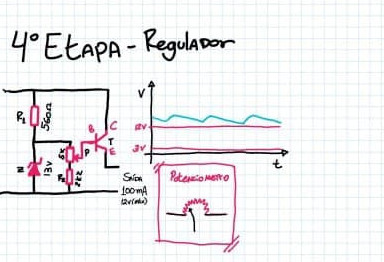 4º ETAPA - REGULADOR
R1
560Ω
Z
13V
5K
P
2k2
B
C
T
E
Saída
100mA
12V(máx)
V
12V
3V
t
Potenciometro